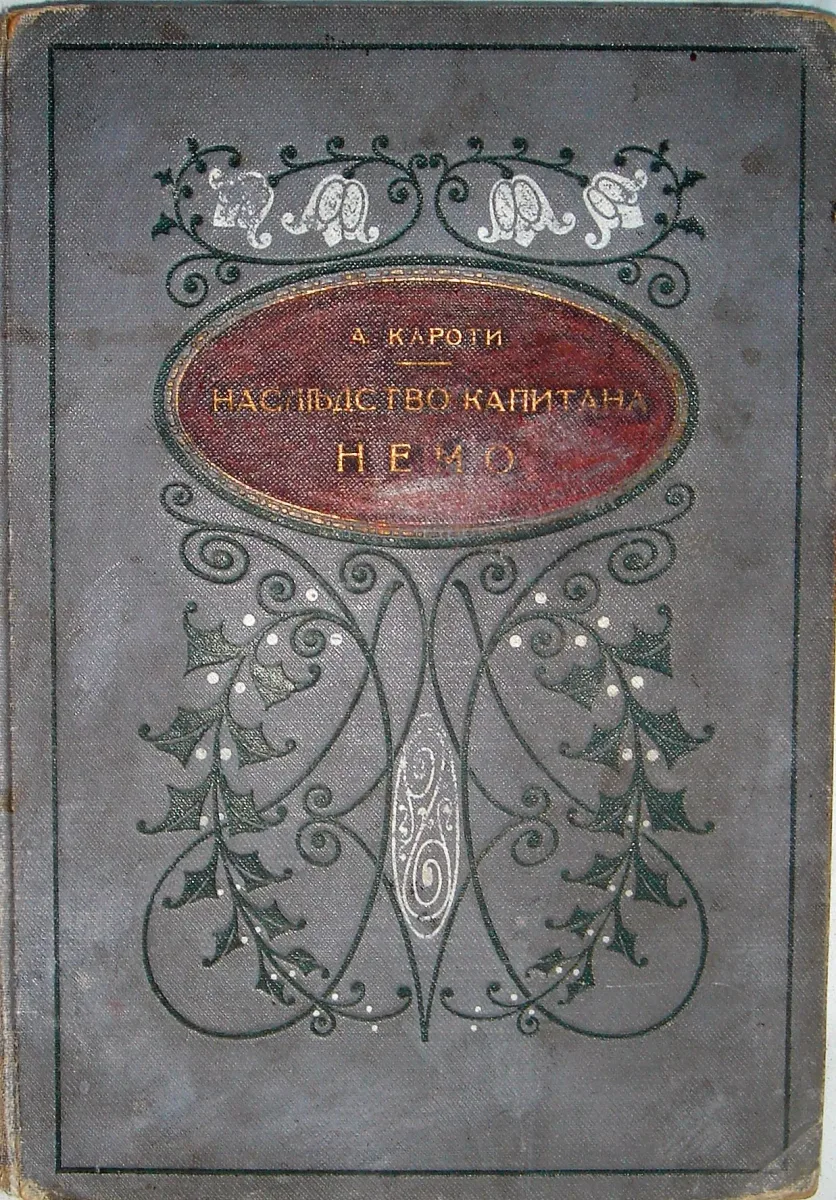 А. КАРОТИ
НАСЛѢДСТВО КАПИТАНА
НЕМО